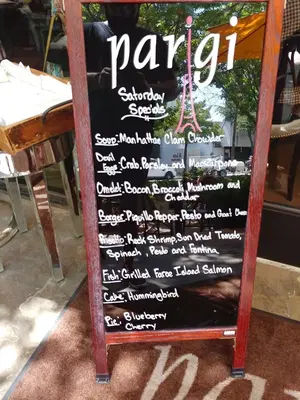 parigi
Saturday
Specials
Soup: Manhattan Clam Chowder
Devil
Eggs: Crab, Parsley and
Omelet: Bacon, Broccoli, Mushroom and
Cheddar
Burger: Piquillo Pepper, Pesto and Goat
Risotto: Rock Shrimp, Sun Dried Tomato,
Spinach, Pesto and Fontina
Fish: Grilled Faroe Island Salmon
Cake: Hummingbird
Pie: Blueberry
Cherry